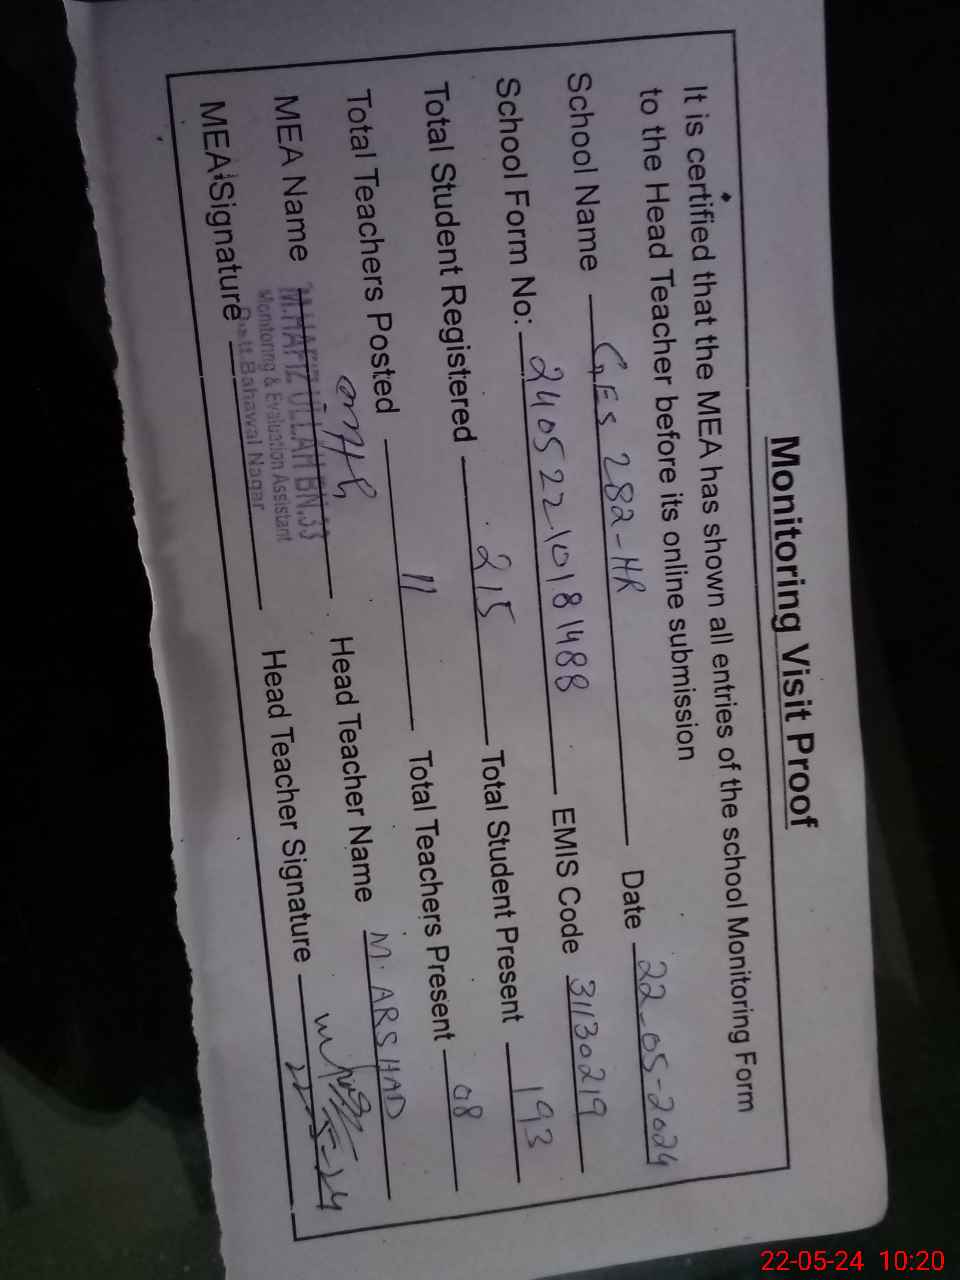 Monitoring Visit Proof
It is certified that the MEA has shown all entries of the school Monitoring Form
to the Head Teacher before its online submission
School Name GES 282-HR Date 22-05-2024
School Form No: 2405221018 1488 EMIS Code 31130219
Total Student Registered 215 Total Student Present 193
Total Teachers Posted 11 Total Teachers Present 08
MEA Name M.HAFIZ ULLAH BN.33 Head Teacher Name M. ARSHAD
Monitoring & Evaluation Assistant
Distt. Bahawal Nagar
MEA Signature Head Teacher Signature
22-5-24
22-05-24 10:20